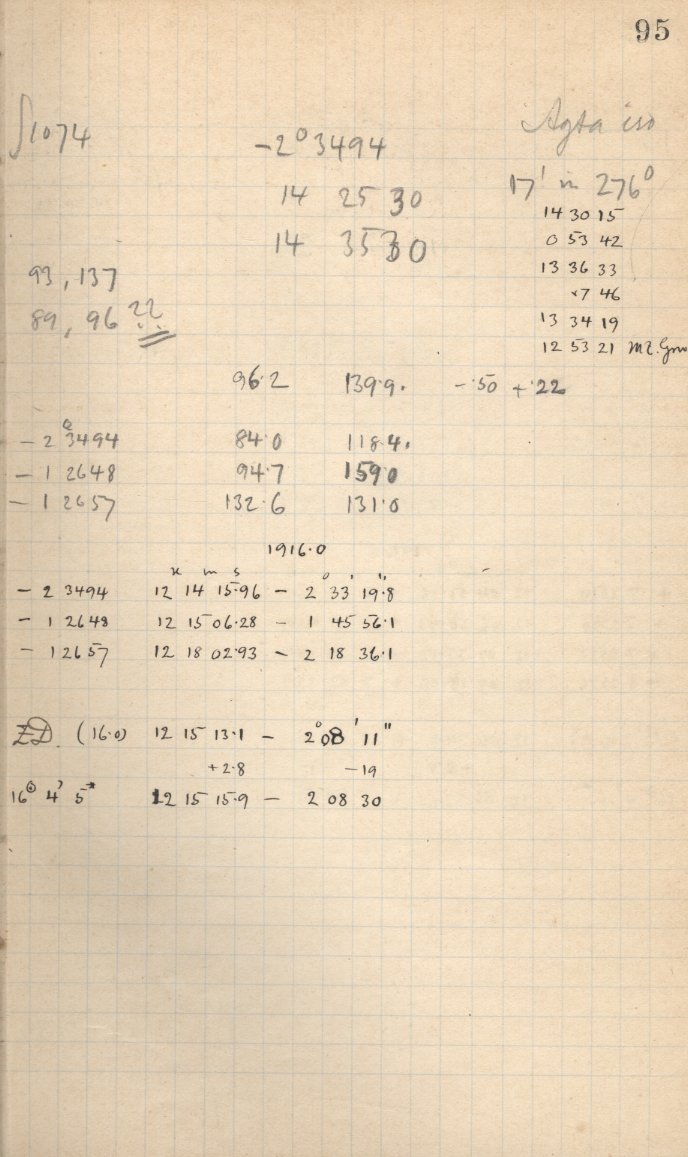 95
∫1074
Agta iso
-2° 3494
17' in 276°
14 25 30
14 30 15
14 35 30
0 53 42
93, 137
13 36 33
7 46
89, 96 ??
13 34 19
12 53 21
96·2 139·9. -·50 +·22
- 2° 3494 84·0 118·4.
- 1 2648 94·7 159·0
- 1 2657 132·6 131·0
1916·0
h m s ° ' "
- 2 3494 12 14 15·96 - 2 33 19·8
- 1 2648 12 15 06·28 - 1 45 56·1
- 1 2657 12 18 02·93 - 2 18 36·1
(16·0) 12 15 13·1 - 2° 08' 11"
+2·8 -19
12 15 15·9 - 2 08 30